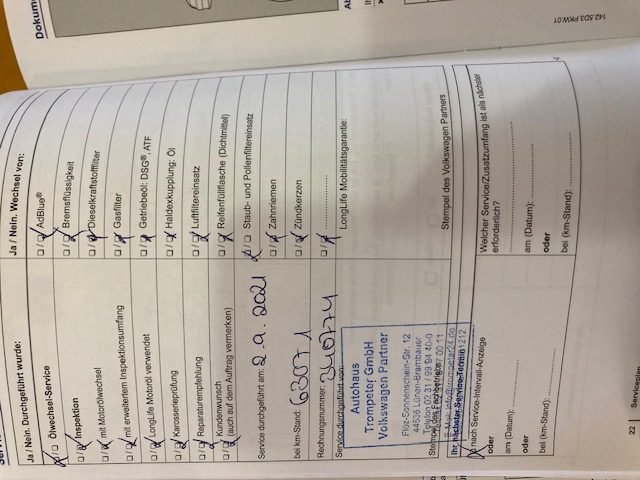 Dokum
142.5D3.PKW.01
Ja / Nein. Durchgeführt wurde:
☒ / ☐ Ölwechsel-Service
☐ / ☒ Inspektion
☐ / ☒ mit Motorölwechsel
☐ / ☒ mit erweitertem Inspektionsumfang
☐ / ☒ LongLife Motoröl verwendet
☐ / ☒ Karosserieprüfung
☐ / ☒ Reparaturempfehlung
☐ / ☒ Kundenwunsch
(auch auf dem Auftrag vermerken)
Service durchgeführt am: 2.9.2021
bei km-Stand: 63071
Rechnungsnummer: 340774
Service durchgeführt von:
Autohaus
Trompeter GmbH
Volkswagen Partner
44536 Lünen-Brambauer
Telefon 02 31 / 99 94 40-0
Ihr nächster Service-Termin
☒ nach Service-Intervall-Anzeige
oder
am (Datum):
bei (km-Stand):
Ja / Nein. Wechsel von:
☐ / ☒ AdBlue®
☐ / ☒ Bremsflüssigkeit
☐ / ☒ Dieselkraftstofffilter
☐ / ☒ Gasfilter
☐ / ☒ Getriebeöl: DSG®, ATF
☐ / ☒ Haldexkupplung: Öl
☐ / ☒ Luftfiltereinsatz
☐ / ☒ Reifenfüllflasche (Dichtmittel)
☒ / ☐ Staub- und Pollenfiltereinsatz
☐ / ☒ Zahnriemen
☐ / ☒ Zündkerzen
☐ / ☒
LongLife Mobilitätsgarantie:
Stempel des Volkswagen Partners
Welcher Service/Zusatzumfang ist als nächster
erforderlich?
am (Datum):
oder
bei (km-Stand):
22